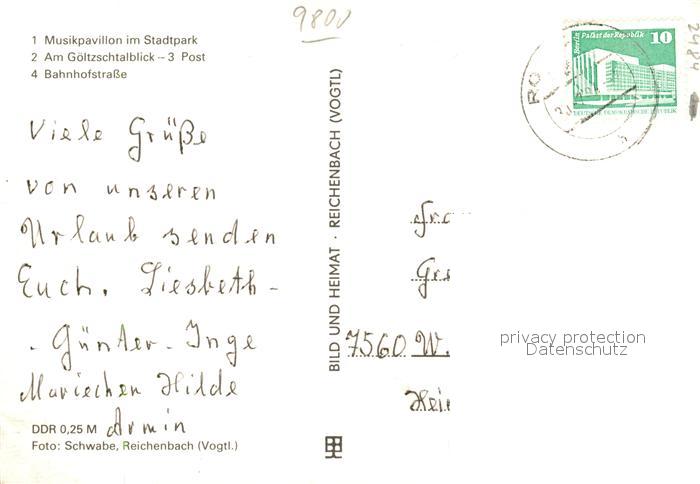 9800
1 Musikpavillon im Stadtpark
2 Am Göltzschtalblick – 3 Post
4 Bahnhofstraße
Viele Grüße
von unseren
Urlaub senden
Euch. Liesbeth -
. Günter - Inge
Mariechen Hilde
Armin
DDR 0,25 M
Foto: Schwabe, Reichenbach (Vogtl.)
BILD UND HEIMAT · REICHENBACH (VOGTL)
Berlin Palast der Republik
10
DEUTSCHE DEMOKRATISCHE REPUBLIK
2484
7560 W.
privacy protection
Datenschutz